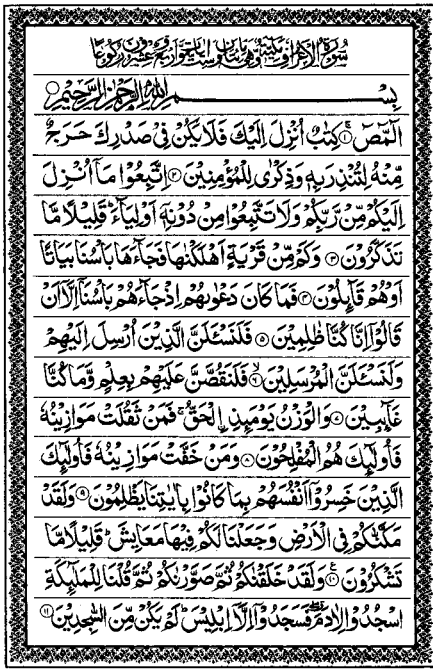 سُوْرَةُ الْاَعْرَافِ مَكِّيَّةٌ وَّهِىَ مِائَتَانِ وَسِتُّ اٰيَاتٍ وَّاَرْبَعٌ وَّعِشْرُوْنَ رُكُوْعًا
بِسْمِ اللّٰهِ الرَّحْمٰنِ الرَّحِيْمِ
الٓمّٓصٓ ۝۱ كِتٰبٌ اُنْزِلَ اِلَيْكَ فَلَا يَكُنْ فِىْ صَدْرِكَ حَرَجٌ
مِّنْهُ لِتُنْذِرَ بِهٖ وَذِكْرٰى لِلْمُؤْمِنِيْنَ ۝۲ اِتَّبِعُوْا مَآ اُنْزِلَ
اِلَيْكُمْ مِّنْ رَّبِّكُمْ وَلَا تَتَّبِعُوْا مِنْ دُوْنِهٖٓ اَوْلِيَآءَ ؕ قَلِيْلًا مَّا
تَذَكَّرُوْنَ ۝۳ وَكَمْ مِّنْ قَرْيَةٍ اَهْلَكْنٰهَا فَجَآءَهَا بَاْسُنَا بَيَاتًا
اَوْهُمْ قَآئِلُوْنَ ۝۴ فَمَا كَانَ دَعْوٰىهُمْ اِذْ جَآءَهُمْ بَاْسُنَآ اِلَّآ اَنْ
قَالُوْٓا اِنَّا كُنَّا ظٰلِمِيْنَ ۝۵ فَلَنَسْئَلَنَّ الَّذِيْنَ اُرْسِلَ اِلَيْهِمْ
وَلَنَسْئَلَنَّ الْمُرْسَلِيْنَ ۝۶ فَلَنَقُصَّنَّ عَلَيْهِمْ بِعِلْمٍ وَّمَا كُنَّا
غَآئِبِيْنَ ۝۷ وَالْوَزْنُ يَوْمَئِذِ اِۨلْحَقُّ ۚ فَمَنْ ثَقُلَتْ مَوَازِيْنُهٗ
فَاُولٰٓئِكَ هُمُ الْمُفْلِحُوْنَ ۝۸ وَمَنْ خَفَّتْ مَوَازِيْنُهٗ فَاُولٰٓئِكَ
الَّذِيْنَ خَسِرُوْٓا اَنْفُسَهُمْ بِمَا كَانُوْا بِاٰيٰتِنَا يَظْلِمُوْنَ ۝۹ وَلَقَدْ
مَكَّنّٰكُمْ فِى الْاَرْضِ وَجَعَلْنَا لَكُمْ فِيْهَا مَعَايِشَ ؕ قَلِيْلًا مَّا
تَشْكُرُوْنَ ۝۱۰ وَلَقَدْ خَلَقْنٰكُمْ ثُمَّ صَوَّرْنٰكُمْ ثُمَّ قُلْنَا لِلْمَلٰٓئِكَةِ
اسْجُدُوْا لِاٰدَمَ فَسَجَدُوْٓا اِلَّآ اِبْلِيْسَ ؕ لَمْ يَكُنْ مِّنَ السّٰجِدِيْنَ ۝۱۱